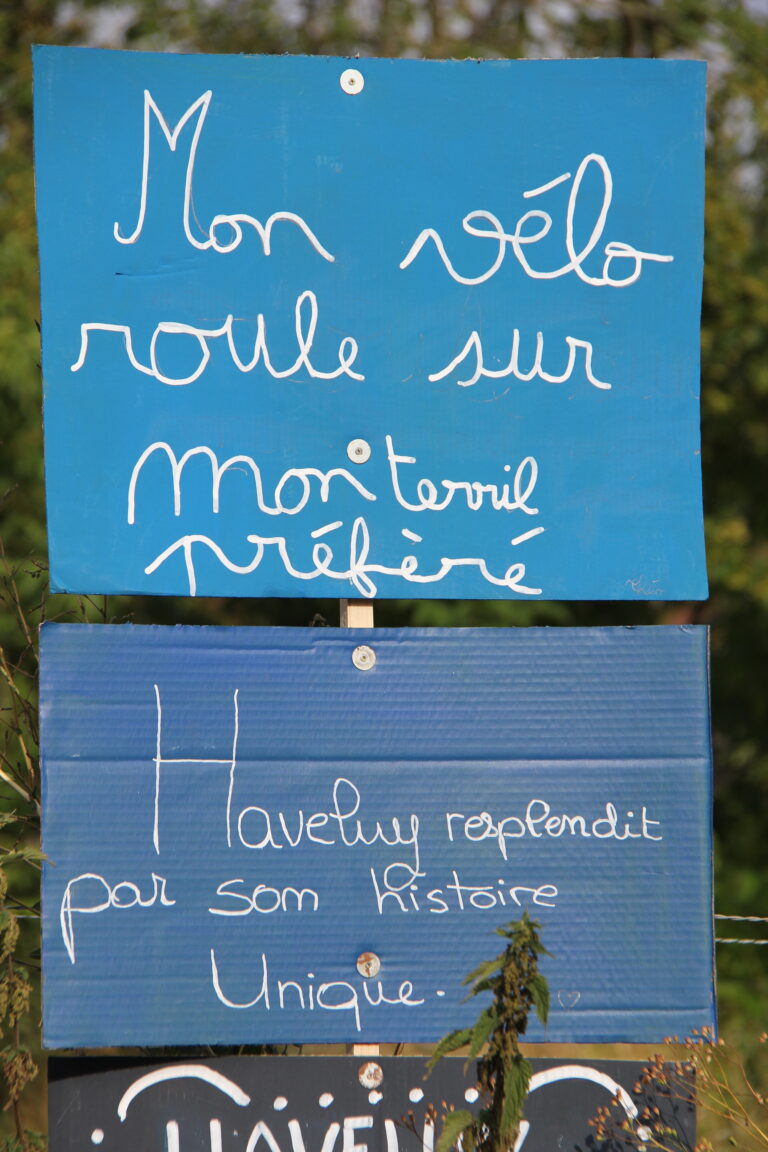 Mon vélo
roule sur
mon terril
préfèré
Théo
Haveluy resplendit
par son histoire
Unique.
HAVELUY